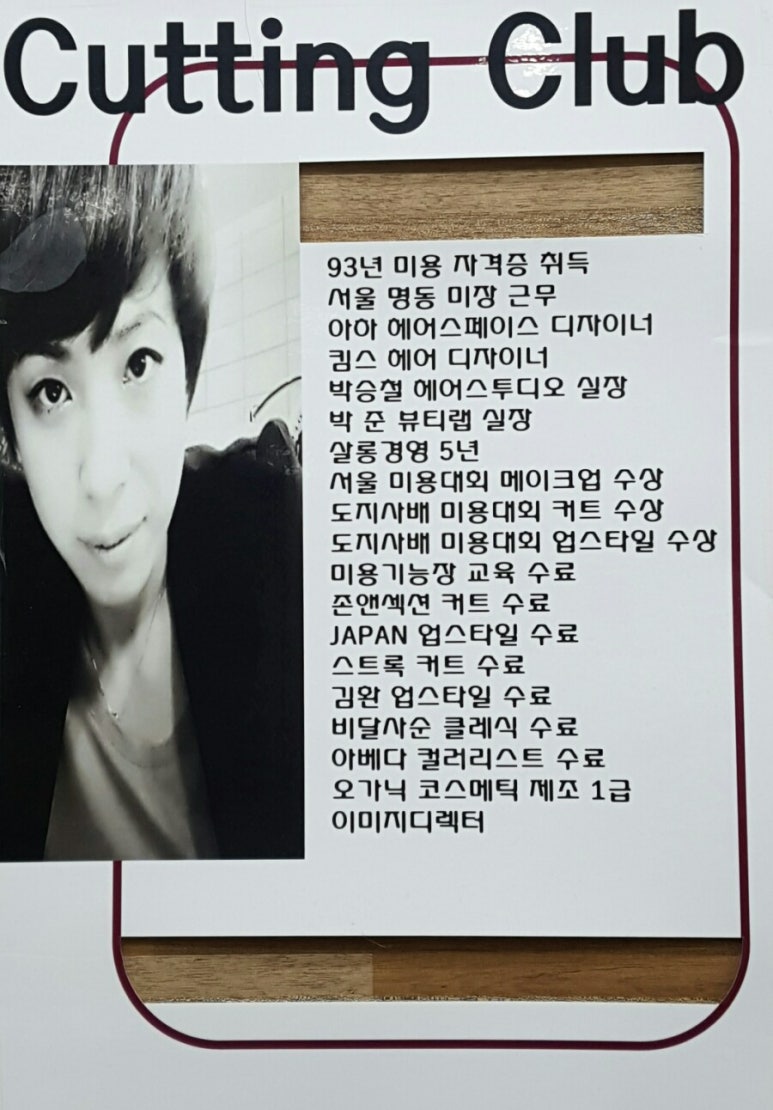 Cutting Club
93년 미용 자격증 취득
서울 명동 미장 근무
아하 헤어스페이스 디자이너
킴스 헤어 디자이너
박승철 헤어스투디오 실장
박 준 뷰티랩 실장
살롱경영 5년
서울 미용대회 메이크업 수상
도지사배 미용대회 커트 수상
도지사배 미용대회 업스타일 수상
미용기능장 교육 수료
존앤섹션 커트 수료
JAPAN 업스타일 수료
스트록 커트 수료
김완 업스타일 수료
비달사순 클레식 수료
아베다 컬러리스트 수료
오가닉 코스메틱 제조 1급
이미지디렉터